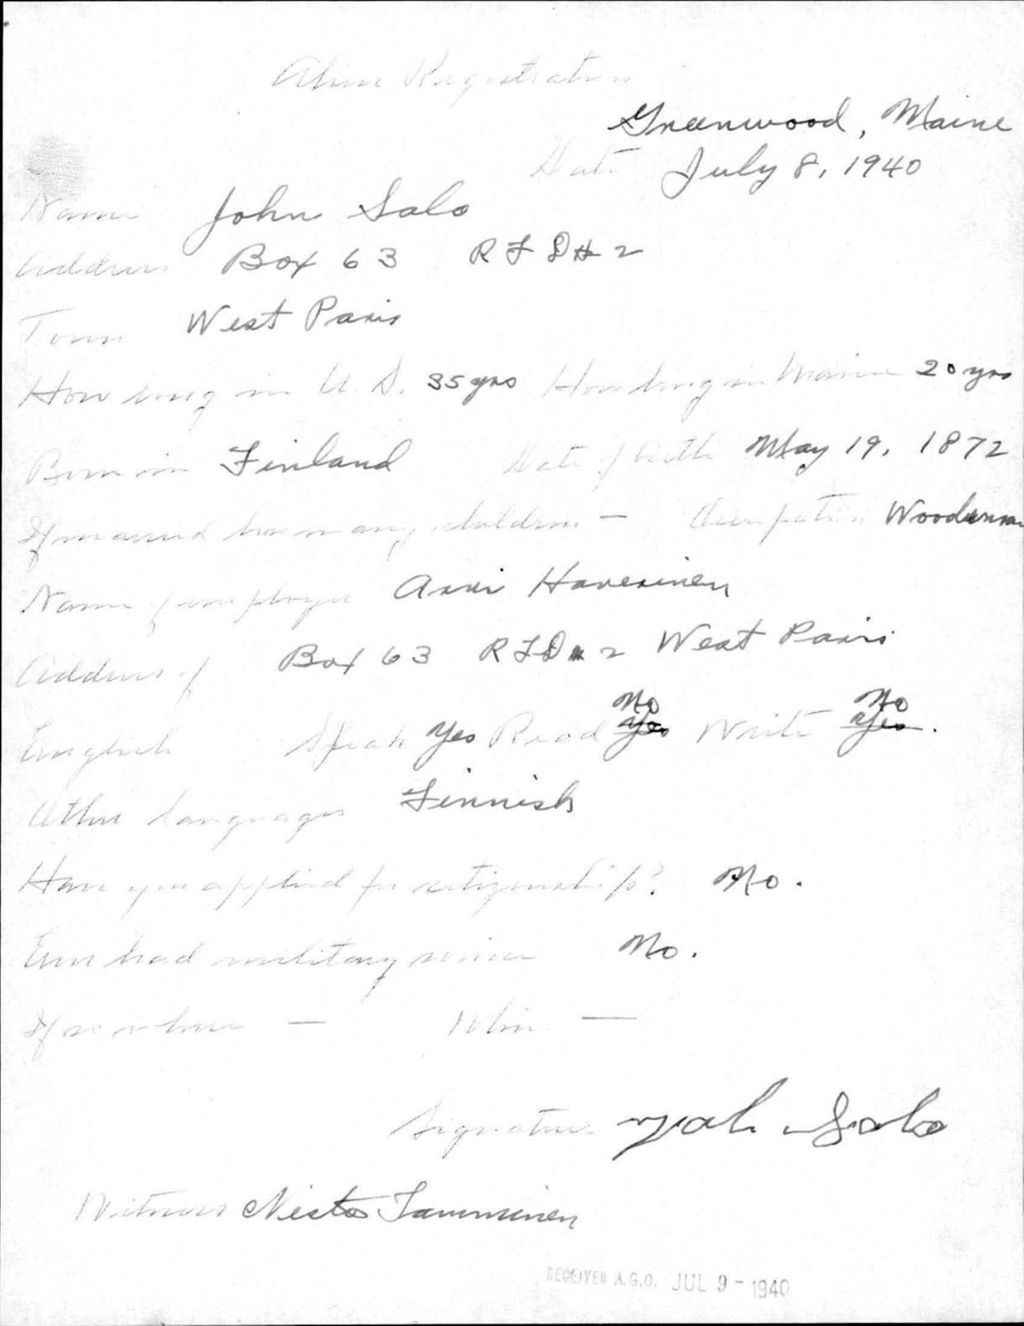 Alien Registration
Greenwood, Maine
Date July 8, 1940
Name John Salo
Address Box 63 R F D # 2
Town West Paris
How long in U. S. 35 yrs How long in Maine 20 yrs
Born in Finland Date of birth May 19, 1872
If married how many children — Occupation Woodsman
Name of employer Arvi Haveninen
Address of Box 63 R F D # 2 West Paris
English Speak Yes Read No Yes Write No Yes.
Other languages Finnish
Have you applied for citizenship? No.
Ever had military service No.
If so where — When —
Signature Salo
Witness Nesto Tamminen
RECEIVED A.G.O. JUL 9 - 1940